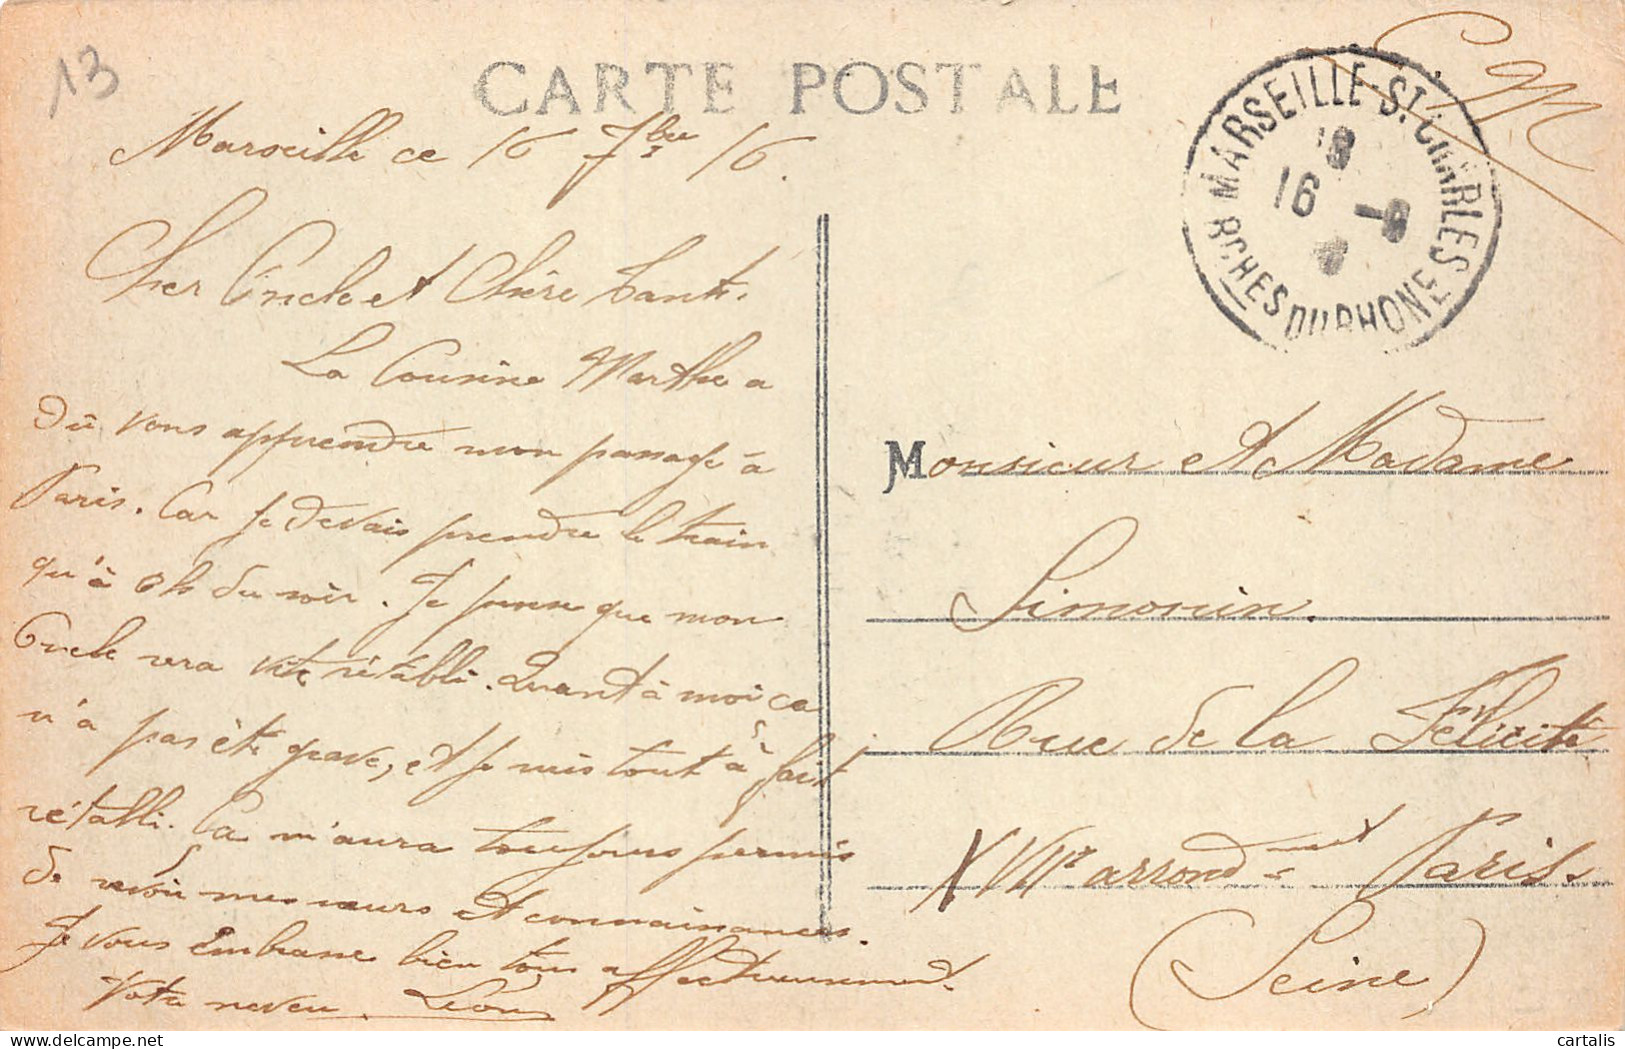 13
CARTE POSTALE
C M
MARSEILLE-ST CHARLES
BCHES DU RHONE
16 -9
Marseille ce 16 7bre 16.
Cher Oncle et Chère Tante.
La Cousine Marthe a
Dû vous apprendre mon passage à
Paris. Car je devais prendre le train
qu'à 8h du soir. Je pense que mon
Oncle sera vite rétabli. Quant à moi ca
n'a pas été grave, et je suis tout à fait
rétabli. Ca m'aura toujours permis
de revoir mes sœurs et connaissances.
Je vous Embrasse bien tous affectueusement.
Votre neveu. Léon
Monsieur et Madame
Simonin.
Rue de la Félicité
XVIIe arrondmt Paris.
(Seine)
cartalis